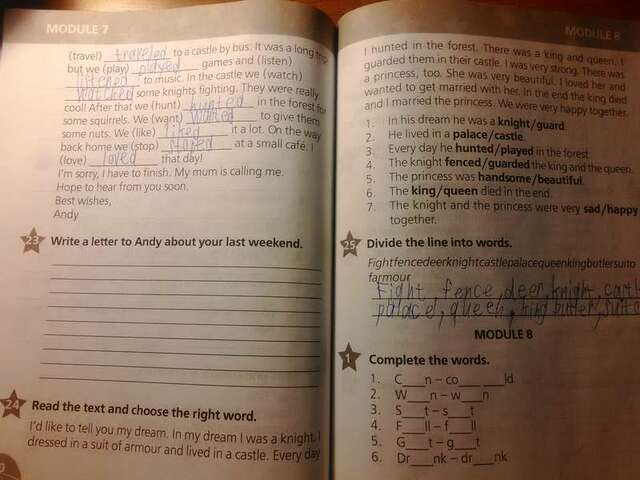 MODULE 7
(travel) traveled to a castle by bus. It was a long trip
but we (play) played games and (listen)
listened to music. In the castle we (watch)
watched some knights fighting. They were really
cool! After that we (hunt) hunted in the forest for
some squirrels. We (want) wanted to give them
some nuts. We (like) liked it a lot. On the way
back home we (stop) stoped at a small café. I
(love) loved that day!
I'm sorry, I have to finish. My mum is calling me.
Hope to hear from you soon.
Best wishes,
Andy
23 Write a letter to Andy about your last weekend.
24 Read the text and choose the right word.
I'd like to tell you my dream. In my dream I was a knight. I
dressed in a suit of armour and lived in a castle. Every day
MODULE 8
I hunted in the forest. There was a king and queen. I
guarded them in their castle. I was very strong. There was
a princess, too. She was very beautiful. I loved her and
wanted to get married with her. In the end the king died
and I married the princess. We were very happy together.
1. In his dream he was a knight/guard.
2. He lived in a palace/castle.
3. Every day he hunted/played in the forest.
4. The knight fenced/guarded the king and the queen.
5. The princess was handsome/beautiful.
6. The king/queen died in the end.
7. The knight and the princess were very sad/happy
together.
25 Divide the line into words.
Fightfencedeerknightcastlepalacequeenkingbutlersuito
farmour
Fight, fence, deer, knight, castl
palace, queen, king butler, suito
MODULE 8
1 Complete the words.
1. C___n – co___ ___ld
2. W___n – w___n
3. S___t – s___t
4. F___ll – f___ll
5. G___t – g___t
6. Dr___nk – dr___nk